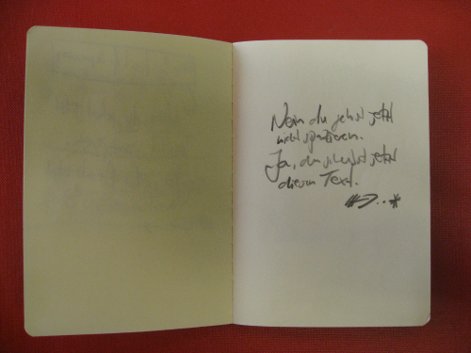 Nein du gehst jetzt
nicht spazieren.
Ja, du schreibst jetzt
diesen Text.